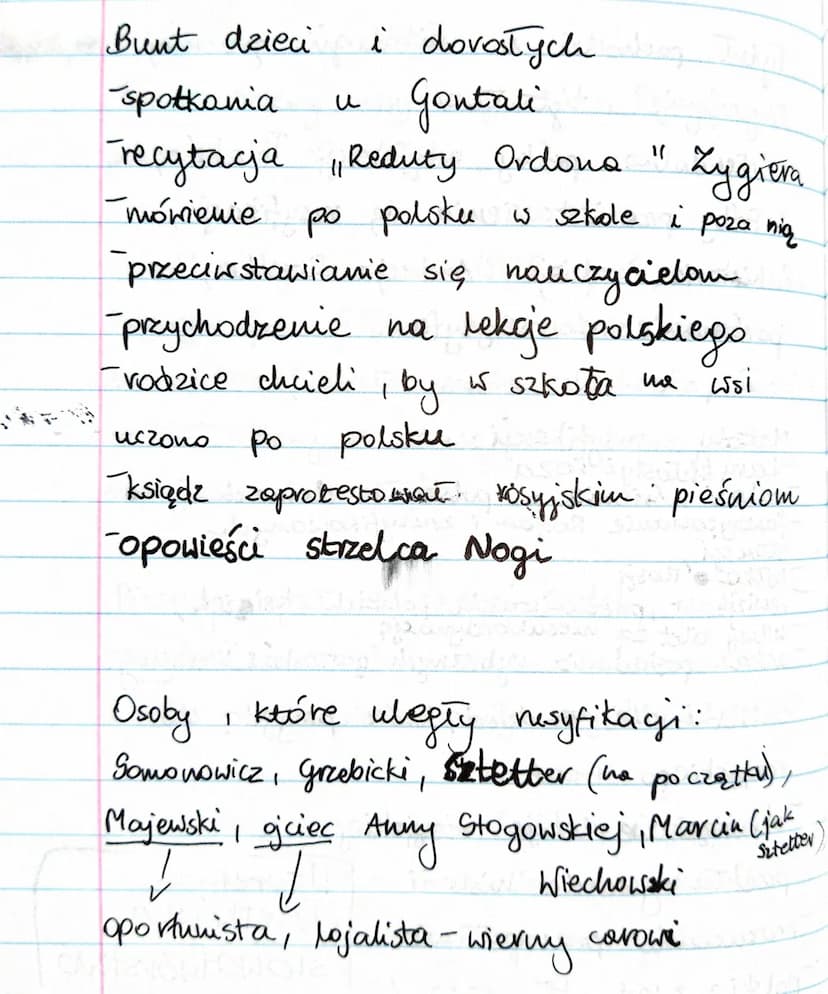 Bunt dzieci i dorosłych
-spotkania u Gontali
-recytacja „Reduty Ordona" Zygiera
-mówienie po polsku w szkole i poza nią
-przeciwstawianie się nauczycielom
-przychodzenie na lekcje polskiego
-rodzice chcieli, by w szkoła na wsi
uczono po polsku
-ksiądz zaprotestował rosyjskim pieśniom
-opowieści strzelca Nogi
Osoby, które uległy rusyfikacji:
Somonowicz, Grzebicki, Sztetter (na początku),
Majewski, ojciec Anny Stogowskiej, Marcin (jak Sztetter)
Wiechowski
oportunista, lojalista - wierny carowi